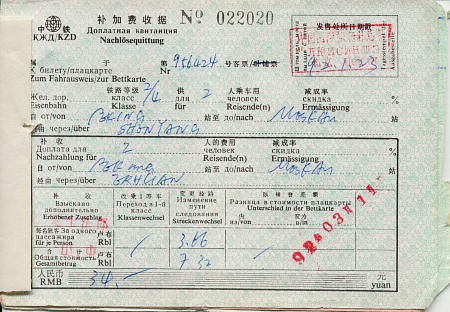 中 铁 补加费收据 № 022020 发售处所日期戳
КЖД/KZD Доплатная квитанция
Nachlösequittung
属 第 956424 号客票/卧铺票
К билету/плацкарте №
Zum Fahrausweis/zur Bettkarte Nr
铁路等级 供 人乘车用 减成率
Жел. дор. класс 2/4 для 2 человек скидка
Eisenbahn Klasse für Reisende(n) Ermässigung
自 от/von PEKING 站 至 до/nach MOSKAU 站
经由 через/über SHENYANG
补 收 人的费用 减成率
Доплата для 2 человек скидка
Nachzahlung für Reisende(n) Ermässigung
自 от/von PEKING 站 至 до/nach MOSKAU 站
经由 через/über ERHLIAN
补 收 改乘1等车 变更经路
Взыскано дополнительно Переход в 1-й класс Изменение пути следования Разница в стоимости плацкарты
Erhobener Zuschlag Klassenwechsel Streckenwechsel Unterschied in der Bettkarte
每名旅客 За одного пассажира für je Person 卢布 Rbl 3.66
合计 Общая стоимость Gesamtbetrag 卢布 Rbl 7.32
92 03 11
人民币 元
RMB 34.- yuan